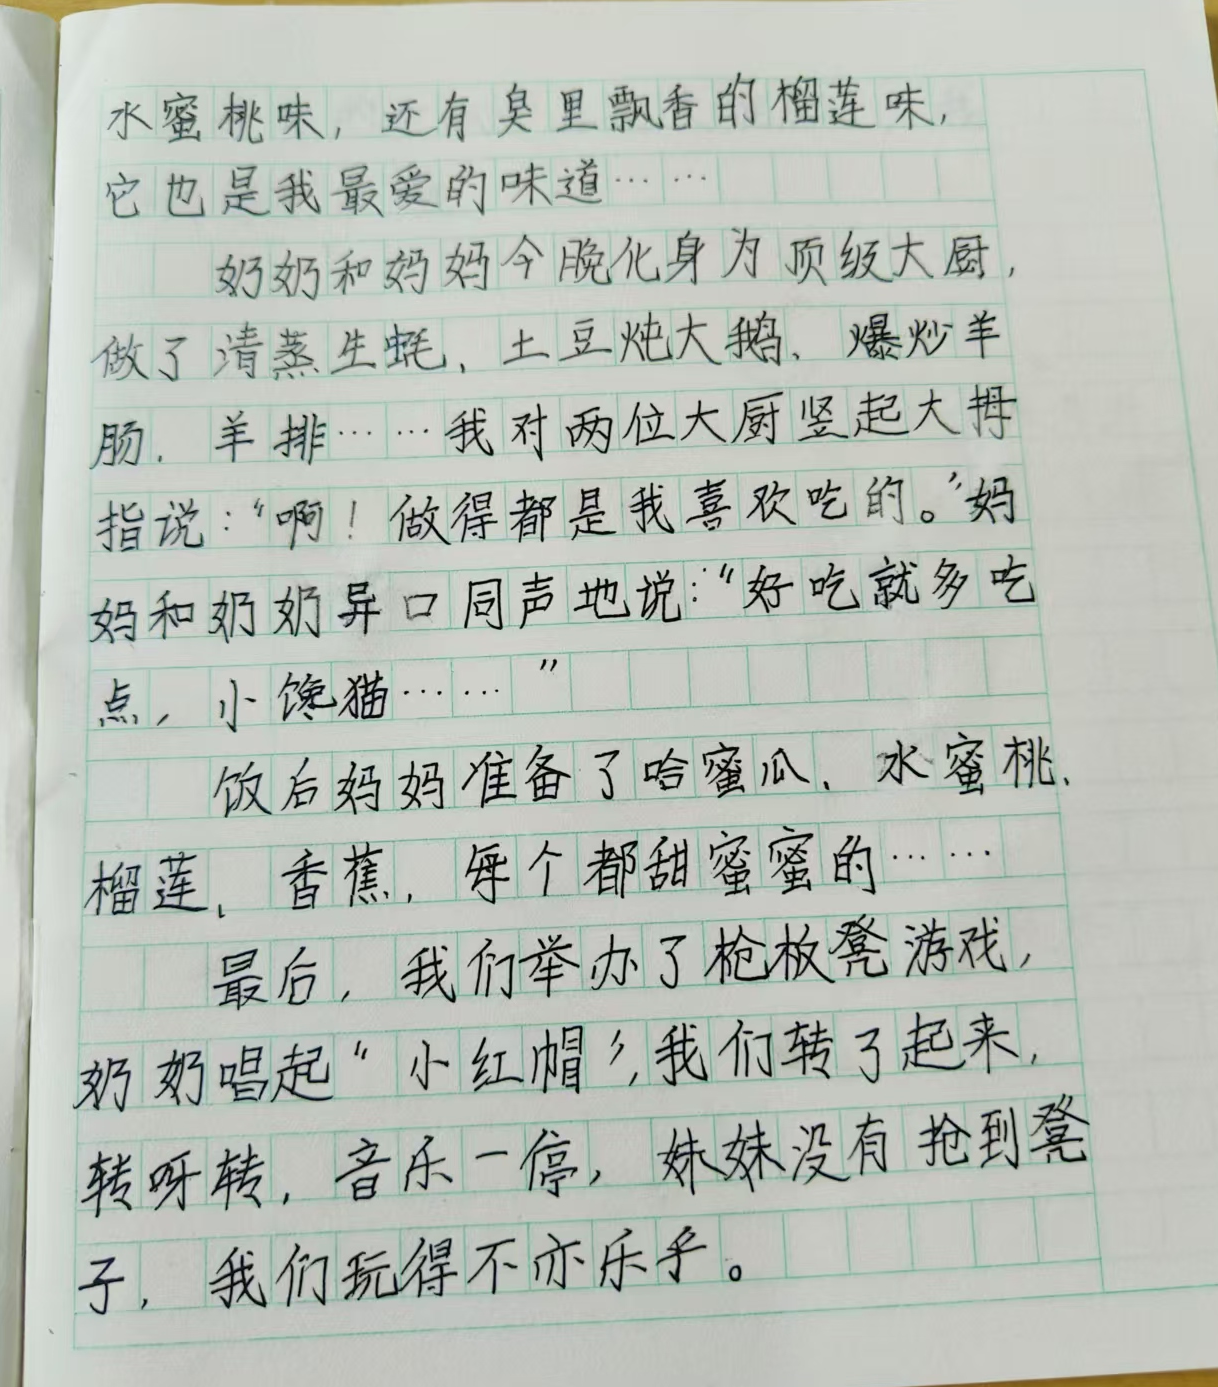 水蜜桃味，还有臭里飘香的榴莲味，
它也是我最爱的味道……
奶奶和妈妈今晚化身为顶级大厨，
做了清蒸生蚝、土豆炖大鹅、爆炒羊
肠、羊排……我对两位大厨竖起大拇
指说：“啊！做得都是我喜欢吃的。”妈
妈和奶奶异口同声地说：“好吃就多吃
点，小馋猫……”
饭后妈妈准备了哈蜜瓜、水蜜桃、
榴莲、香蕉，每个都甜蜜蜜的……
最后，我们举办了枪板凳游戏，
奶奶唱起“小红帽”，我们转了起来，
转呀转，音乐一停，妹妹没有抢到凳
子，我们玩得不亦乐乎。